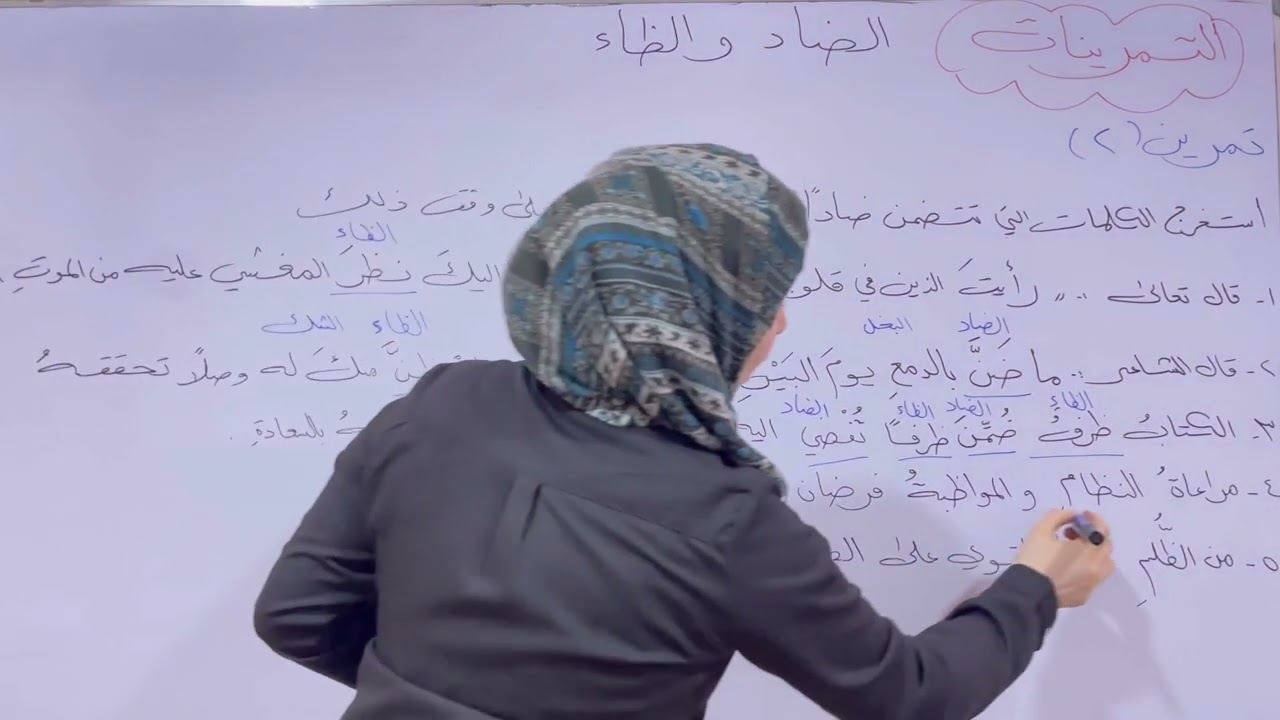 التمرينات
الضاد والظاء
تمرين (٢)
استخرج الكلمات التي تتضمن ضاداً وقت ذلك
الظاء
١- قال تعالى :" رأيتَ الذين في اليكَ نظرَ المغشي عليه من الموتِ
الضاد البخل الظاء الشك
٢- قال الشاعر :: ما ضنَّ بالدمع يومَ منكَ له وصلاً تحققهُ
الظاء الضاد الظاء الضاد
٣- الكتابُ ظرفُ ضُمَّن ظرفاً تُفضي بالسعادةِ .
٤- مراعاةُ النظامِ والمواظبةُ فرضان
٥- من الظُّلمِ على